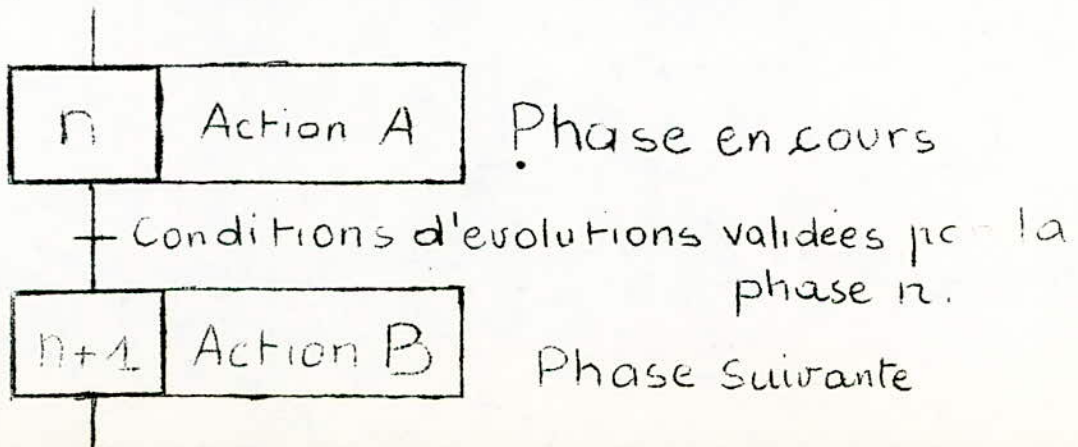 n Action A Phase en cours
Conditions d'evolutions validées la
phase n.
n+1 Action B Phase suivante